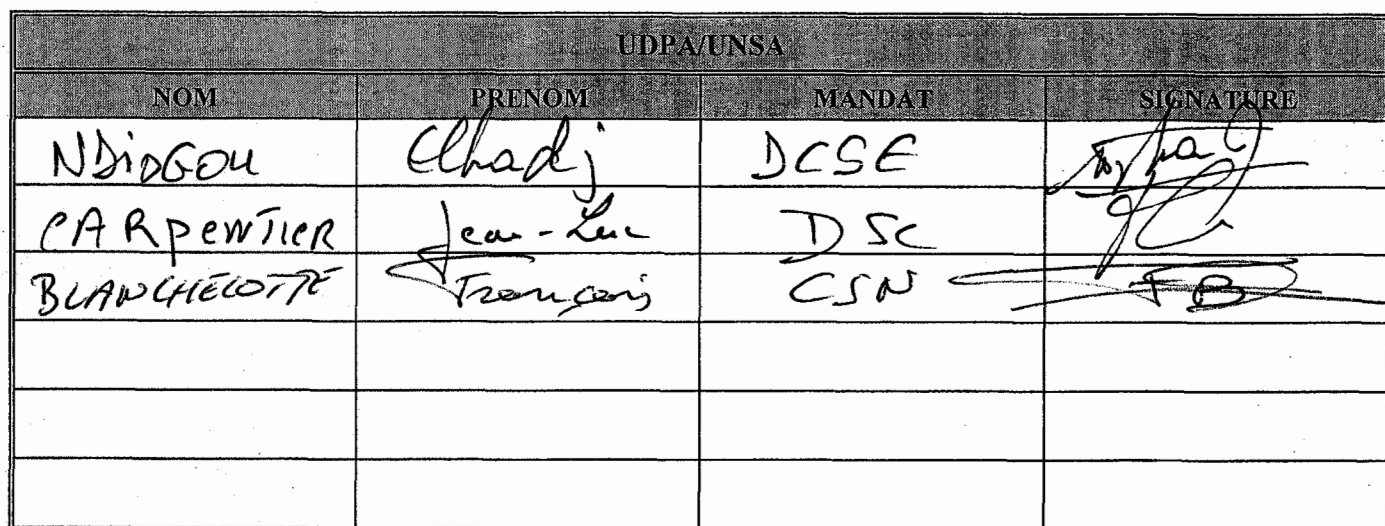 UDPA/UNSA
NOM PRENOM MANDAT SIGNATURE
NDiOGOU Elhadj DCSE
CARPENTIER Jean-Luc DSC
BLANCHECOTTE François CSN FB